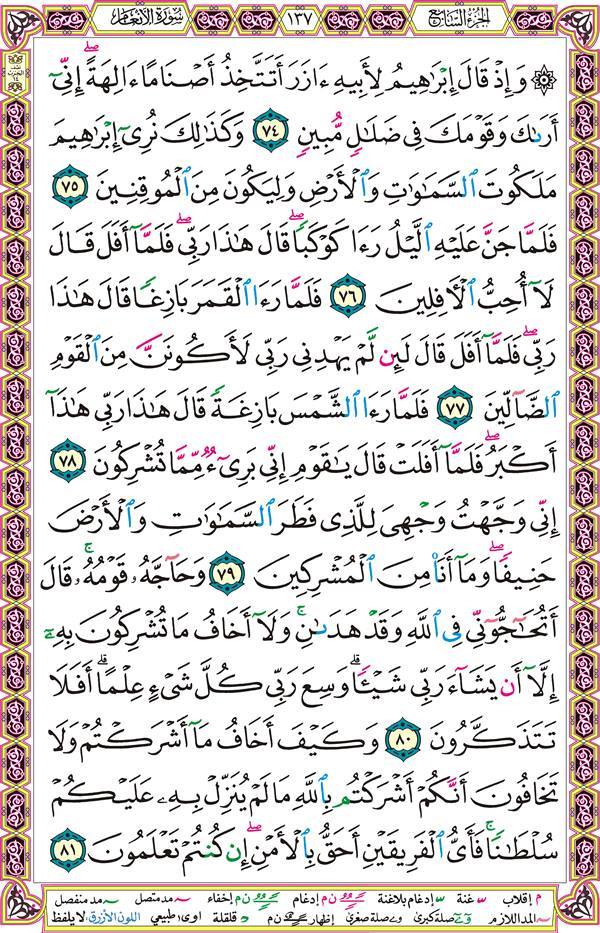 الجزء السابع
١٣٧
سورة الأنعام
۞ وَإِذْ قَالَ إِبْرَٰهِيمُ لِأَبِيهِ ءَازَرَ أَتَتَّخِذُ أَصْنَامًا ءَالِهَةً ۖ إِنِّىٓ
أَرَىٰكَ وَقَوْمَكَ فِى ضَلَٰلٍ مُّبِينٍ ٧٤ وَكَذَٰلِكَ نُرِىٓ إِبْرَٰهِيمَ
مَلَكُوتَ ٱلسَّمَٰوَٰتِ وَٱلْأَرْضِ وَلِيَكُونَ مِنَ ٱلْمُوقِنِينَ ٧٥
فَلَمَّا جَنَّ عَلَيْهِ ٱلَّيْلُ رَءَا كَوْكَبًا ۖ قَالَ هَٰذَا رَبِّى ۖ فَلَمَّآ أَفَلَ قَالَ
لَآ أُحِبُّ ٱلْءَافِلِينَ ٧٦ فَلَمَّا رَءَا ٱلْقَمَرَ بَازِغًا قَالَ هَٰذَا
رَبِّى ۖ فَلَمَّآ أَفَلَ قَالَ لَئِن لَّمْ يَهْدِنِى رَبِّى لَأَكُونَنَّ مِنَ ٱلْقَوْمِ
ٱلضَّآلِّينَ ٧٧ فَلَمَّا رَءَا ٱلشَّمْسَ بَازِغَةً قَالَ هَٰذَا رَبِّى هَٰذَآ
أَكْبَرُ ۖ فَلَمَّآ أَفَلَتْ قَالَ يَٰقَوْمِ إِنِّى بَرِىٓءٌ مِّمَّا تُشْرِكُونَ ٧٨
إِنِّى وَجَّهْتُ وَجْهِىَ لِلَّذِى فَطَرَ ٱلسَّمَٰوَٰتِ وَٱلْأَرْضَ
حَنِيفًا ۖ وَمَآ أَنَا۠ مِنَ ٱلْمُشْرِكِينَ ٧٩ وَحَآجَّهُۥ قَوْمُهُۥ ۚ قَالَ
أَتُحَٰٓجُّوٓنِّى فِى ٱللَّهِ وَقَدْ هَدَىٰنِ ۚ وَلَآ أَخَافُ مَا تُشْرِكُونَ بِهِۦٓ
إِلَّآ أَن يَشَآءَ رَبِّى شَيْـًٔا ۗ وَسِعَ رَبِّى كُلَّ شَىْءٍ عِلْمًا ۗ أَفَلَا
تَتَذَكَّرُونَ ٨٠ وَكَيْفَ أَخَافُ مَآ أَشْرَكْتُمْ وَلَا
تَخَافُونَ أَنَّكُمْ أَشْرَكْتُم بِٱللَّهِ مَا لَمْ يُنَزِّلْ بِهِۦ عَلَيْكُمْ
سُلْطَٰنًا ۚ فَأَىُّ ٱلْفَرِيقَيْنِ أَحَقُّ بِٱلْأَمْنِ ۖ إِن كُنتُمْ تَعْلَمُونَ ٨١
م إقلاب غنة إدغام بلاغنة ن م إدغام ن م إخفاء مد متصل مد منفصل
المد اللازم صلة كبرى صلة صغرى إظهار ن م قلقلة اوى طبيعي اللون الأزرق لا يلفظ